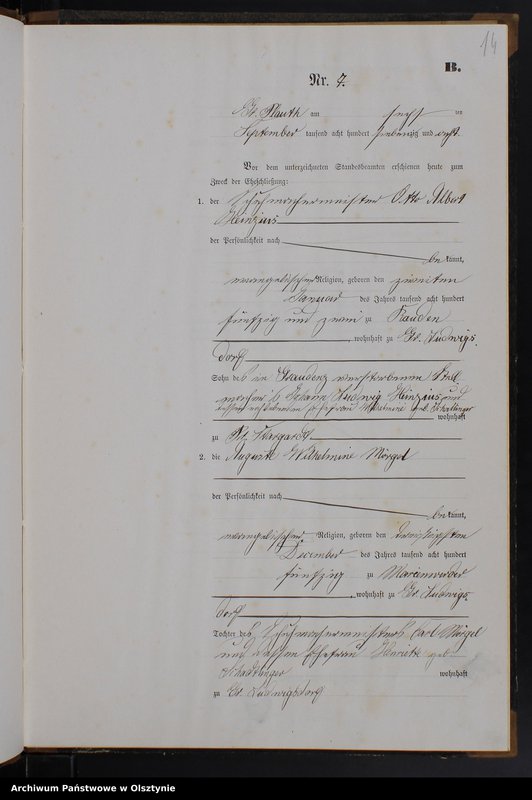 14
B.
Nr. 7.
Gr. Plauth am sechs ten
September tausend acht hundert siebenzig und acht
Vor dem unterzeichneten Standesbeamten erschienen heute zum
Zweck der Eheschließung:
1. der Schuhmachermeister Otto Albert
Heinzius
der Persönlichkeit nach
be kannt,
evangelischer Religion, geboren den zweiten
Januar des Jahres tausend acht hundert
fünfzig und zwei zu Rauden
, wohnhaft zu Gr. Ludwigs
dorf
Sohn des in Graudenz verstorbenen
Johann Ludwig Heinzius und
dessen Ehefrau Wilhelmine geb.
wohnhaft
zu
2. die Auguste Wilhelmine Mörgel
der Persönlichkeit nach
be kannt,
evangelischer Religion, geboren den dreißigsten
December des Jahres tausend acht hundert
fünfzig zu Marienwerder
, wohnhaft zu Gr. Ludwigs
dorf
Tochter des Schuhmachermeisters Carl Mörgel
und dessen Ehefrau geb.
wohnhaft
zu Gr. Ludwigsdorf
Archiwum Państwowe w Olsztynie